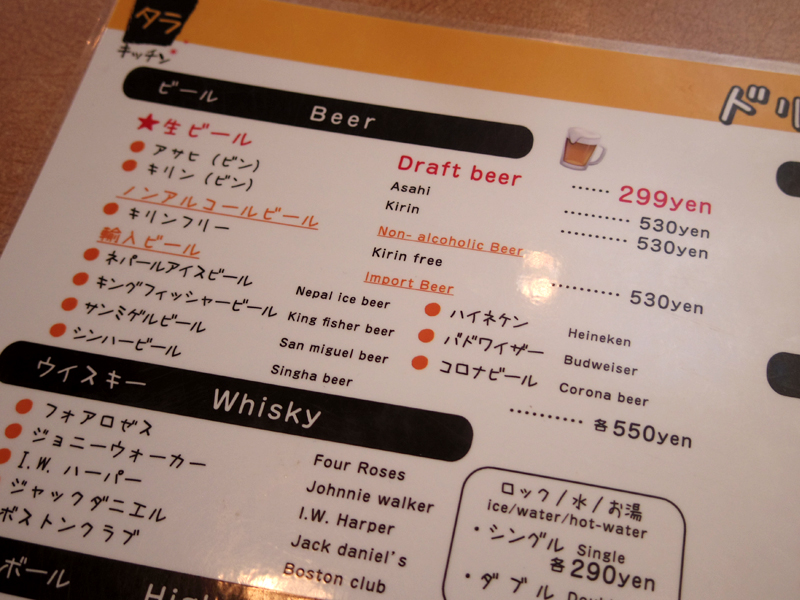 タラ
キッチン
ビール Beer
★生ビール Draft beer ...... 299yen
アサヒ (ビン) Asahi .......... 530yen
キリン (ビン) Kirin .......... 530yen
ノンアルコールビール Non- alcoholic Beer
キリンフリー Kirin free .......... 530yen
輸入ビール Import Beer
ネパールアイスビール Nepal ice beer ハイネケン Heineken
キングフィッシャービール King fisher beer バドワイザー Budweiser
サンミゲルビール San miguel beer コロナビール Corona beer
シンハービール Singha beer
.......... 各550yen
ウイスキー Whisky
フォアロゼス Four Roses
ジョニーウォーカー Johnnie walker
I.W. ハーパー I.W. Harper
ジャックダニエル Jack daniel's
ボストンクラブ Boston club
ロック/水/お湯
ice/water/hot-water
・シングル Single
各290yen
・ダブル